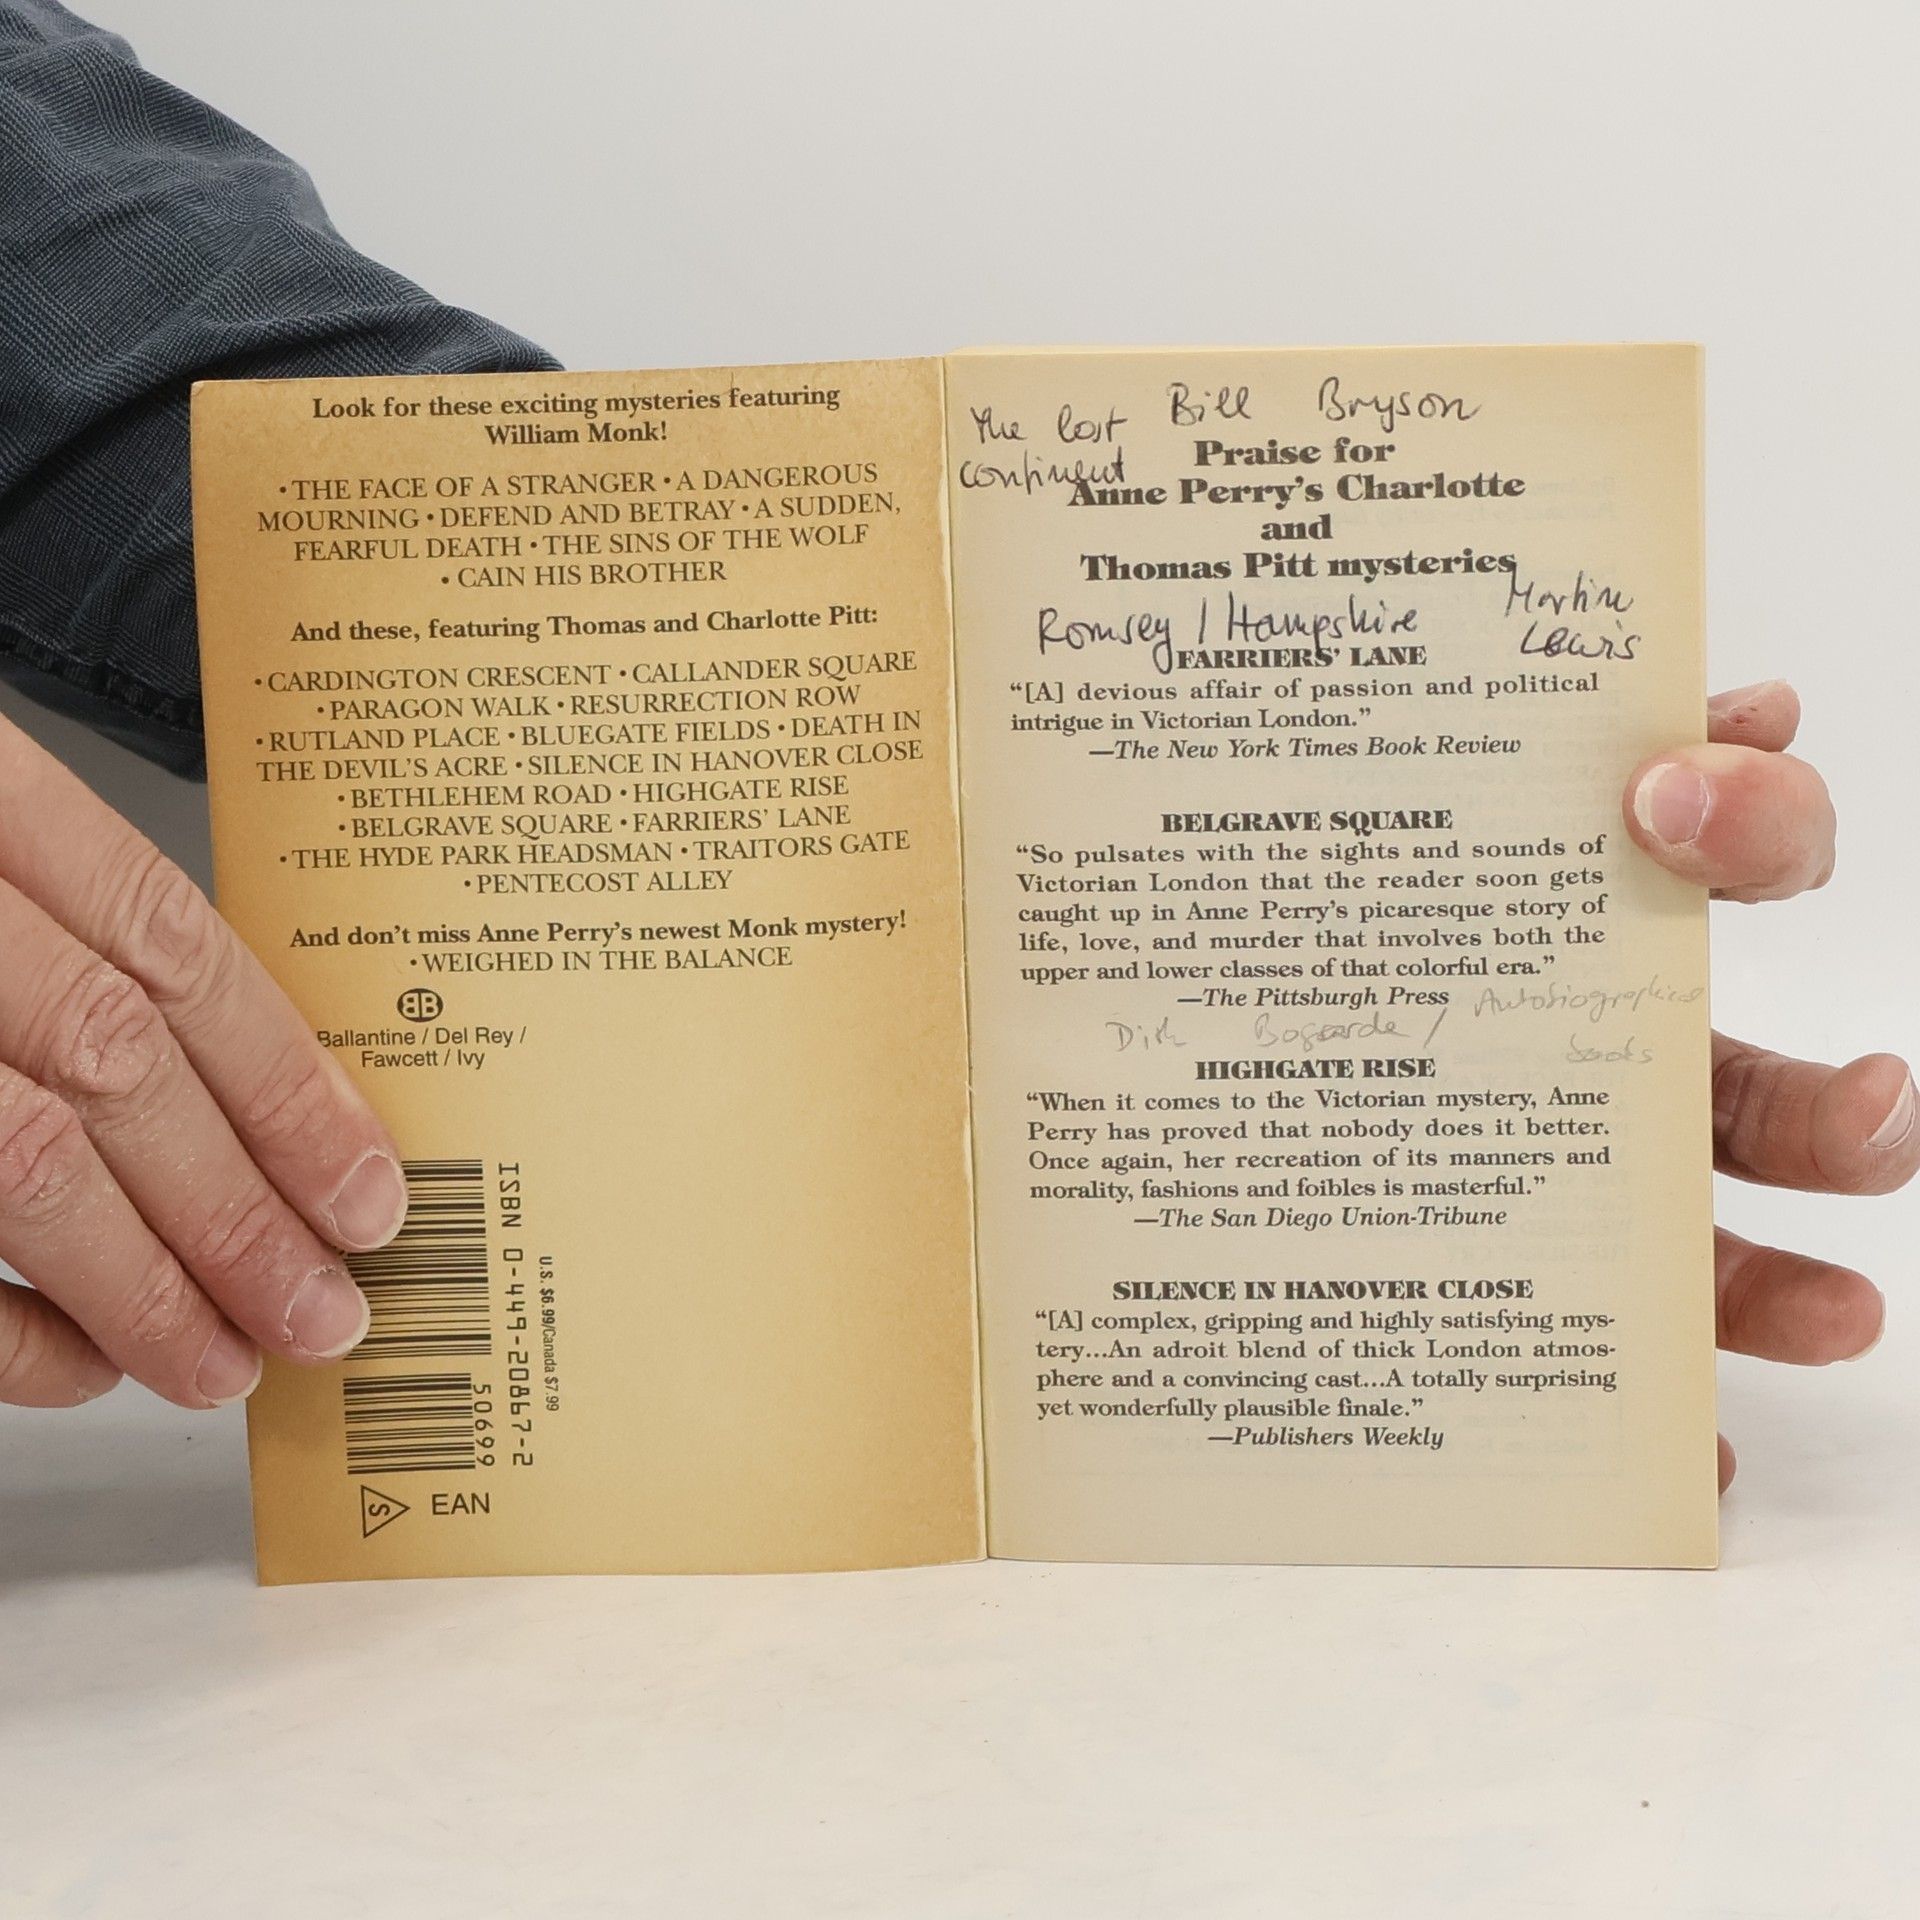 Look for these exciting mysteries featuring
William Monk!
• THE FACE OF A STRANGER • A DANGEROUS
MOURNING • DEFEND AND BETRAY • A SUDDEN,
FEARFUL DEATH • THE SINS OF THE WOLF
• CAIN HIS BROTHER
And these, featuring Thomas and Charlotte Pitt:
• CARDINGTON CRESCENT • CALLANDER SQUARE
• PARAGON WALK • RESURRECTION ROW
• RUTLAND PLACE • BLUEGATE FIELDS • DEATH IN
THE DEVIL'S ACRE • SILENCE IN HANOVER CLOSE
• BETHLEHEM ROAD • HIGHGATE RISE
• BELGRAVE SQUARE • FARRIERS' LANE
• THE HYDE PARK HEADSMAN • TRAITORS GATE
• PENTECOST ALLEY
And don't miss Anne Perry's newest Monk mystery!
• WEIGHED IN THE BALANCE
BB
Ballantine / Del Rey /
Fawcett / Ivy
ISBN 0-449-20867-2
U.S. $6.99/Canada $7.99
50699
S
EAN
Bill Bryson
The lost
continent
Praise for
Anne Perry's Charlotte
and
Thomas Pitt mysteries
Romsey / Hampshire
Lewis
FARRIERS' LANE
“[A] devious affair of passion and political
intrigue in Victorian London.”
—The New York Times Book Review
BELGRAVE SQUARE
“So pulsates with the sights and sounds of
Victorian London that the reader soon gets
caught up in Anne Perry's picaresque story of
life, love, and murder that involves both the
upper and lower classes of that colorful era.”
—The Pittsburgh Press
Dirk Bogarde / Autobiographical
books
HIGHGATE RISE
“When it comes to the Victorian mystery, Anne
Perry has proved that nobody does it better.
Once again, her recreation of its manners and
morality, fashions and foibles is masterful.”
—The San Diego Union-Tribune
SILENCE IN HANOVER CLOSE
“[A] complex, gripping and highly satisfying mys-
tery...An adroit blend of thick London atmos-
phere and a convincing cast...A totally surprising
yet wonderfully plausible finale.”
—Publishers Weekly